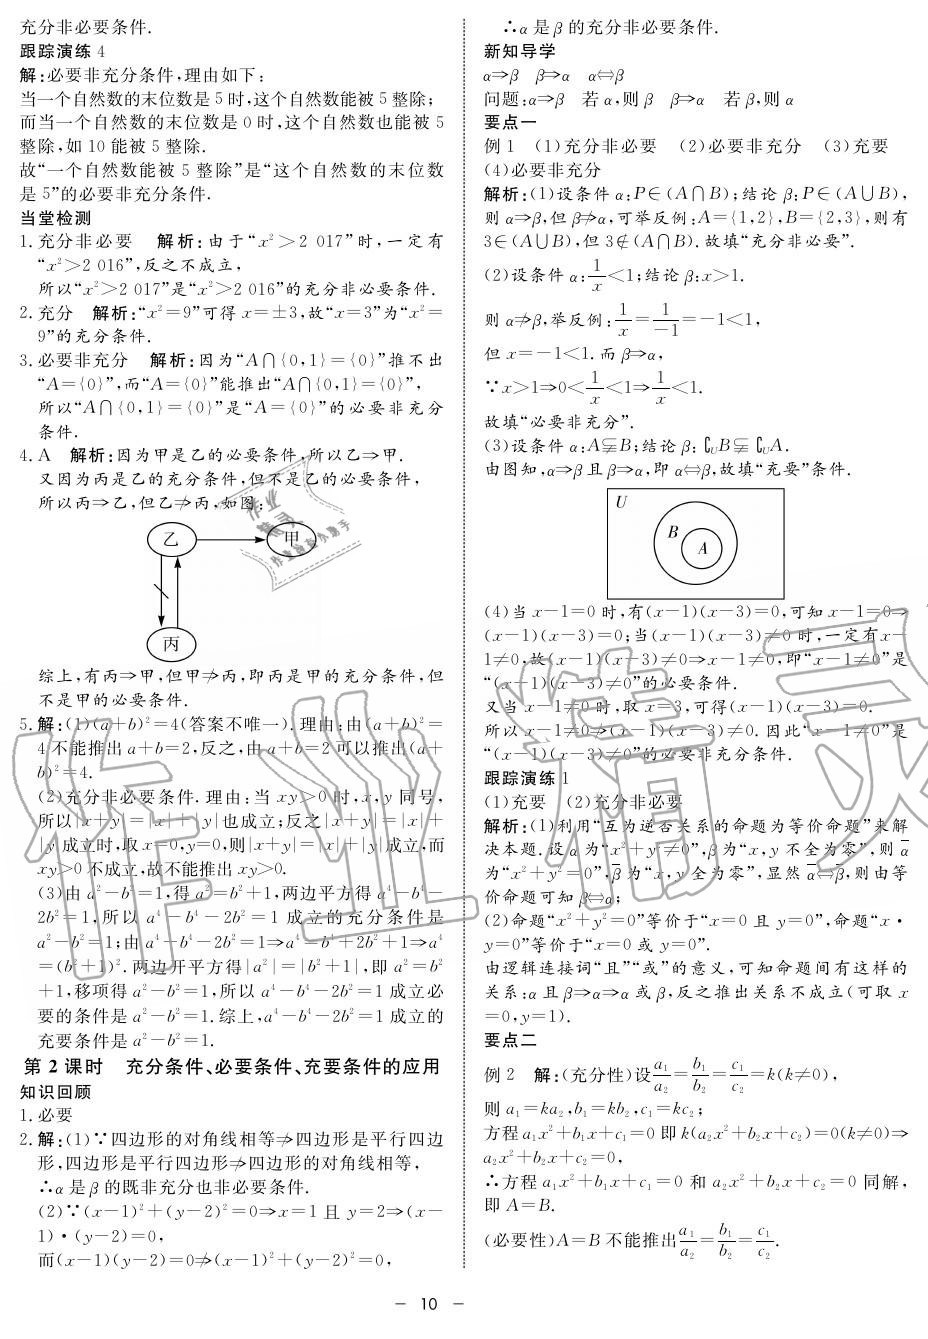 充分非必要条件.
跟踪演练 4
解:必要非充分条件,理由如下:
当一个自然数的末位数是 5 时,这个自然数能被 5 整除;
而当一个自然数的末位数是 0 时,这个自然数也能被 5
整除,如 10 能被 5 整除.
故“一个自然数能被 5 整除”是“这个自然数的末位数
是 5”的必要非充分条件.
当堂检测
1. 充分非必要 解析:由于“x²＞2 017”时,一定有
“x²＞2 016”,反之不成立,
所以“x²＞2 017”是“x²＞2 016”的充分非必要条件.
2. 充分 解析:“x²=9”可得 x=±3,故“x=3”为“x²=
9”的充分条件.
3. 必要非充分 解析:因为“A∩{0,1}={0}”推不出
“A={0}”,而“A={0}”能推出“A∩{0,1}={0}”,
所以“A∩{0,1}={0}”是“A={0}”的必要非充分
条件.
4. A 解析:因为甲是乙的必要条件,所以乙⇒甲.
又因为丙是乙的充分条件,但不是乙的必要条件,
所以丙⇒乙,但乙⇏丙,如图:
乙 甲
丙
综上,有丙⇒甲,但甲⇏丙,即丙是甲的充分条件,但
不是甲的必要条件.
5. 解:(1)(a+b)²=4(答案不唯一).理由:由(a+b)²=
4 不能推出 a+b=2,反之,由 a+b=2 可以推出(a+
b)²=4.
(2)充分非必要条件.理由:当 xy＞0 时,x,y 同号,
所以|x+y|=|x|+|y|也成立;反之|x+y|=|x|+
|y|成立时,取 x=0,y=0,则|x+y|=|x|+|y|成立,而
xy＞0 不成立,故不能推出 xy＞0.
(3)由 a²-b²=1,得 a²=b²+1,两边平方得 a⁴-b⁴-
2b²=1,所以 a⁴-b⁴-2b²=1 成立的充分条件是
a²-b²=1;由 a⁴-b⁴-2b²=1⇒a⁴=b⁴+2b²+1⇒a⁴
=(b²+1)².两边开平方得|a²|=|b²+1|,即 a²=b²
+1,移项得 a²-b²=1,所以 a⁴-b⁴-2b²=1 成立必
要的条件是 a²-b²=1.综上,a⁴-b⁴-2b²=1 成立的
充要条件是 a²-b²=1.
第 2 课时 充分条件、必要条件、充要条件的应用
知识回顾
1. 必要
2. 解:(1)∵四边形的对角线相等⇏四边形是平行四边
形,四边形是平行四边形⇏四边形的对角线相等,
∴α 是 β 的既非充分也非必要条件.
(2)∵(x-1)²+(y-2)²=0⇒x=1 且 y=2⇒(x-
1)·(y-2)=0,
而(x-1)(y-2)=0⇏(x-1)²+(y-2)²=0,
∴α 是 β 的充分非必要条件.
新知导学
α⇒β β⇒α α⇔β
问题:α⇒β 若 α,则 β β⇒α 若 β,则 α
要点一
例 1 (1)充分非必要 (2)必要非充分 (3)充要
(4)必要非充分
解析:(1)设条件 α:P∈(A∩B);结论 β:P∈(A∪B),
则 α⇒β,但 β⇏α,可举反例:A={1,2},B={2,3},则有
3∈(A∪B),但 3∉(A∩B).故填“充分非必要”.
(2)设条件 α:1/x＜1;结论 β:x＞1.
则 α⇏β,举反例:1/x=1/-1=-1＜1,
但 x=-1＜1.而 β⇒α,
∵x＞1⇒0＜1/x＜1⇒1/x＜1.
故填“必要非充分”.
(3)设条件 α:A⫋B;结论 β:∁UB⫋∁UA.
由图知,α⇒β 且 β⇒α,即 α⇔β,故填“充要”条件.
U
B A
(4)当 x-1=0 时,有(x-1)(x-3)=0,可知 x-1=0⇒
(x-1)(x-3)=0;当(x-1)(x-3)≠0 时,一定有 x-
1≠0,故(x-1)(x-3)≠0⇒x-1≠0,即“x-1≠0”是
“(x-1)(x-3)≠0”的必要条件.
又当 x-1≠0 时,取 x=3,可得(x-1)(x-3)=0.
所以 x-1≠0⇏(x-1)(x-3)≠0.因此“x-1≠0”是
“(x-1)(x-3)≠0”的必要非充分条件.
跟踪演练 1
(1)充要 (2)充分非必要
解析:(1)利用“互为逆否关系的命题为等价命题”来解
决本题.设 α 为“x²+y²≠0”,β 为“x,y 不全为零”,则 α̅
为“x²+y²=0”,β̅ 为“x,y 全为零”,显然 α̅⇔β̅,则由等
价命题可知 β⇔α;
(2)命题“x²+y²=0”等价于“x=0 且 y=0”,命题“x·
y=0”等价于“x=0 或 y=0”.
由逻辑连接词“且”“或”的意义,可知命题间有这样的
关系:α 且 β⇒α⇒α 或 β,反之推出关系不成立(可取 x
=0,y=1).
要点二
例 2 解:(充分性)设a₁/a₂=b₁/b₂=c₁/c₂=k(k≠0),
则 a₁=ka₂,b₁=kb₂,c₁=kc₂;
方程 a₁x²+b₁x+c₁=0 即 k(a₂x²+b₂x+c₂)=0(k≠0)⇒
a₂x²+b₂x+c₂=0,
∴方程 a₁x²+b₁x+c₁=0 和 a₂x²+b₂x+c₂=0 同解,
即 A=B.
(必要性)A=B 不能推出a₁/a₂=b₁/b₂=c₁/c₂.
- 10 -
作业精灵